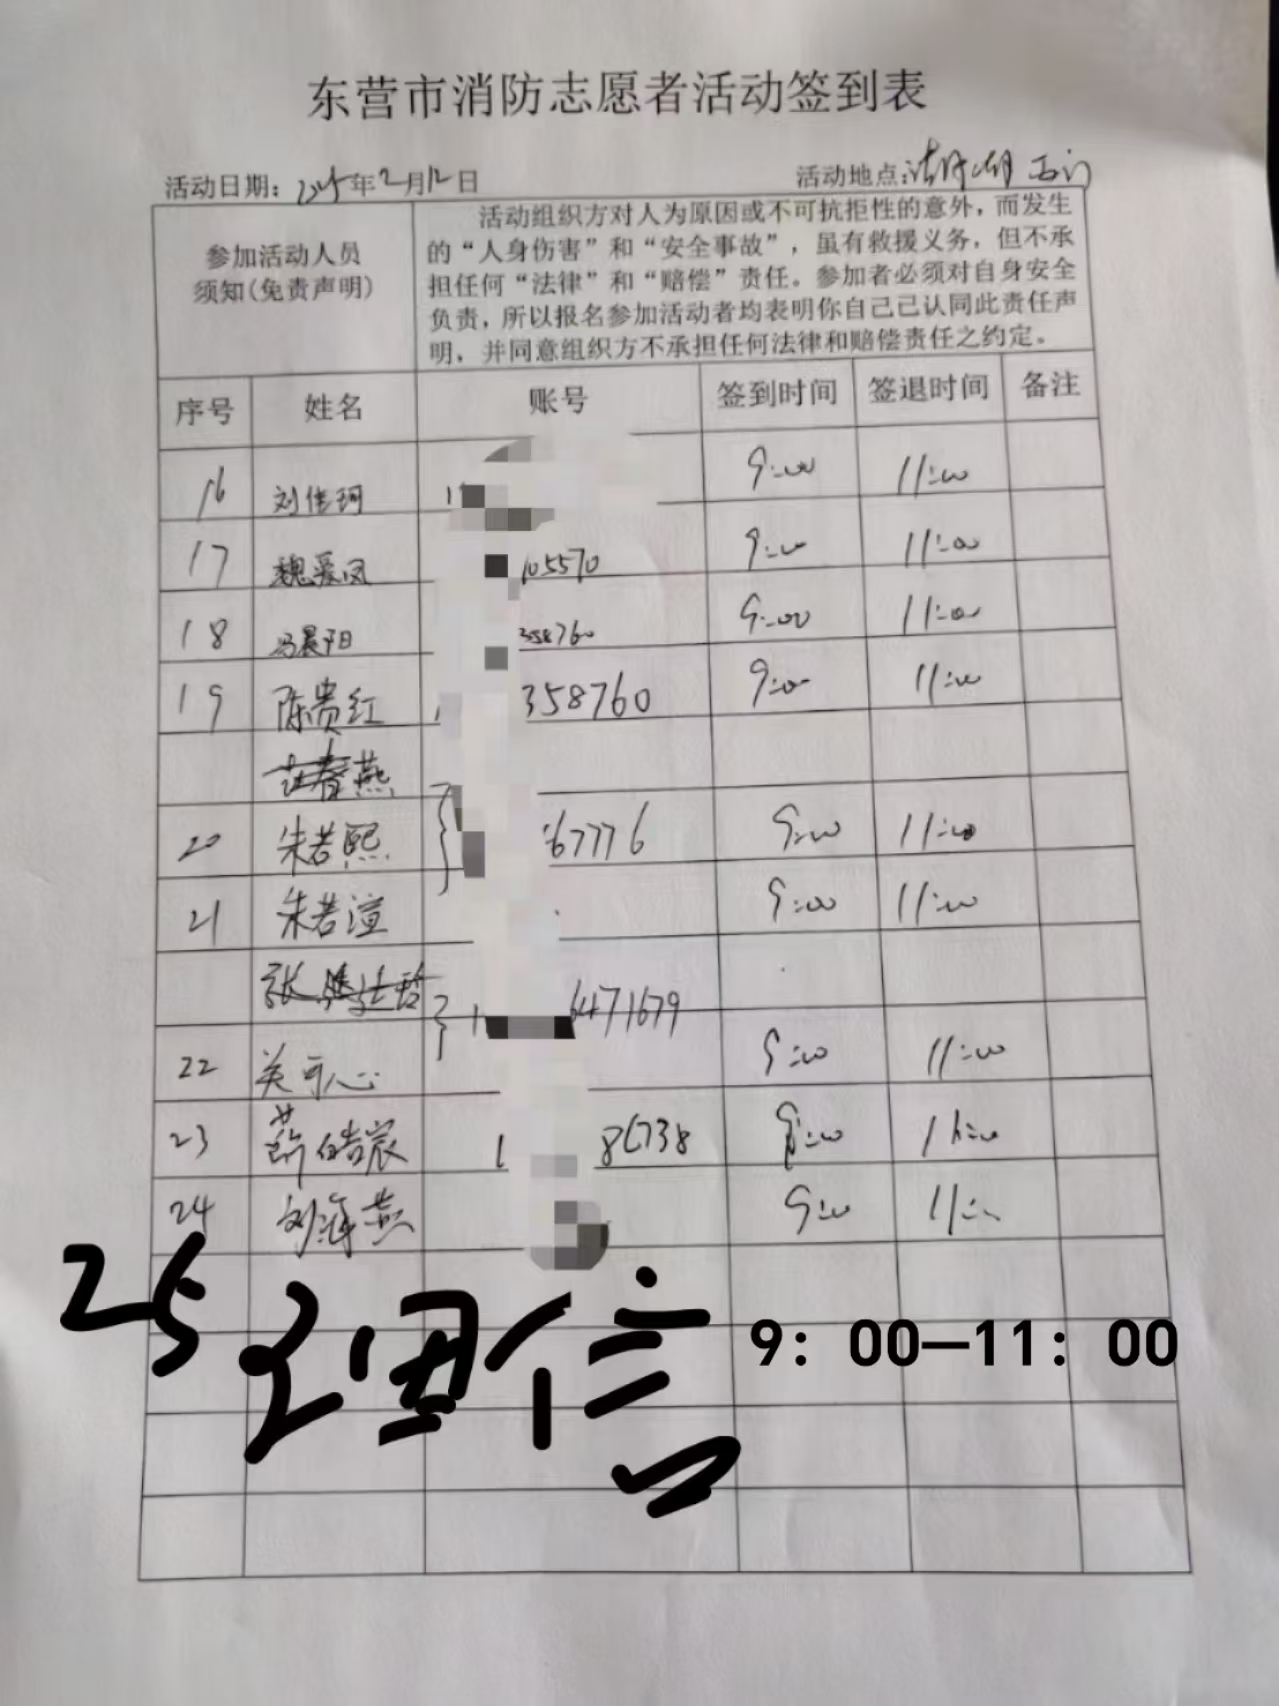 东营市消防志愿者活动签到表
活动日期：2025年2月12日 活动地点：清风湖西门
参加活动人员
须知(免责声明)
活动组织方对人为原因或不可抗拒性的意外，而发生
的“人身伤害”和“安全事故”，虽有救援义务，但不承
担任何“法律”和“赔偿”责任。参加者必须对自身安全
负责，所以报名参加活动者均表明你自己己认同此责任声
明，并同意组织方不承担任何法律和赔偿责任之约定。
序号 姓名 账号 签到时间 签退时间 备注
16 刘佳珂 1 9:00 11:00
17 魏爱凤 105570 9:00 11:00
18 冯晨阳 358760 9:00 11:00
19 陈贵红 358760 9:00 11:00
春燕
20 朱若熙 67776 9:00 11:00
21 朱若渲 9:00 11:00
张 1 6471679
22 关可心 9:00 11:00
23 薪皓宸 1 86738 9:00 11:00
24 刘海燕 9:00 11:00
25 信 9：00—11：00